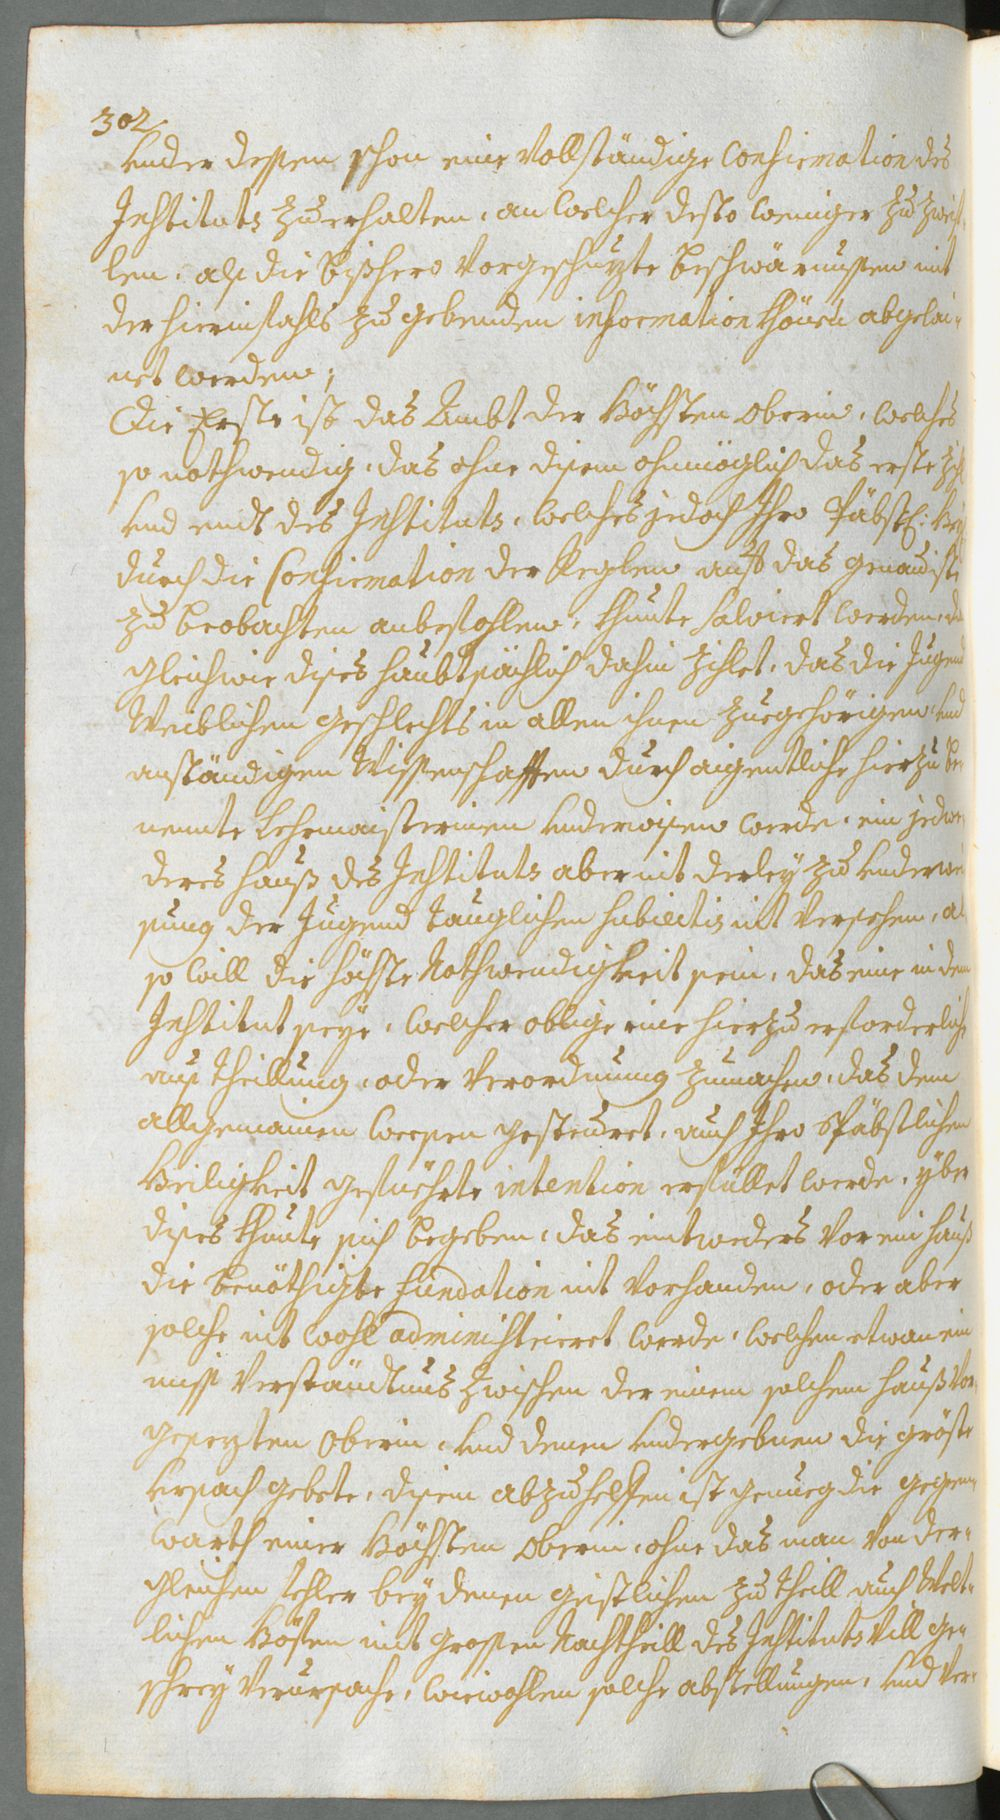 302
under dessen schon eine vollständige Confirmation des
Institutz zuerhalten, an welcher desto weniger zu zweif-
len, als die bißhero vorgeschuzte beschwärnussen mit
der hierinfahls zu gebenden information khönen abgelai-
net werden;
Die Erste ist das Ambt der Höchsten Oberin, welches
so nothwendig, das ohne disem ohnmöglich das erste Zihl
und endt des Instituts, welches jedoch Ihro Päbstl: Heyl:
durch die Confirmation der Reglen auf das genaueste
zu beobachten anbefohlen, khunte salviert werden, dan
gleichwie dises haubtsächlich dahin zihlet, das die Jugend
Weiblichen geschlechts in allen ihnen zuegehörigen und
anständigen Wissenschafften durch aigentliche hierzu be-
nennte Lehrmaisterinen underwisen werde, ein jedwe-
deres Hauß des Institutz aber nit derley zu underwei-
sung der Jugend tauglichen subiectis nit versehen, al-
so will die höchste Nothwendigkeit sein, das eine in dem
Institut seye, welcher oblige eine hierzu erforderliche
auß theillung, oder verordnung zumachen, das dem
allgemainen weesen gesteuret, auch Ihro Päbstlichen
Heiligkeit gefüehrte intention erfüllet werde, yber
dises khunte sich begeben, das entweders vor ein Hauß
die benöthigte fundation nit vorhanden, oder aber
solche nit wohl administrieret werde, welchen etwan ein
miß verständtnus zwischen der einem solchem Hauß vor-
gesezten Oberin, und denen undergebnen die gröste
ursach gebete, disem abzuhelffen ist genueg die gegen-
warth einer Höchsten Oberin, ohne das man von der-
gleichen fehler bey denen geistlichen zu theill auch Welt-
lichen Höfen mit grossen Nachtheill des Institutz vill ge-
schrey verursache, wiewohlen solche abstellungen, und ver-